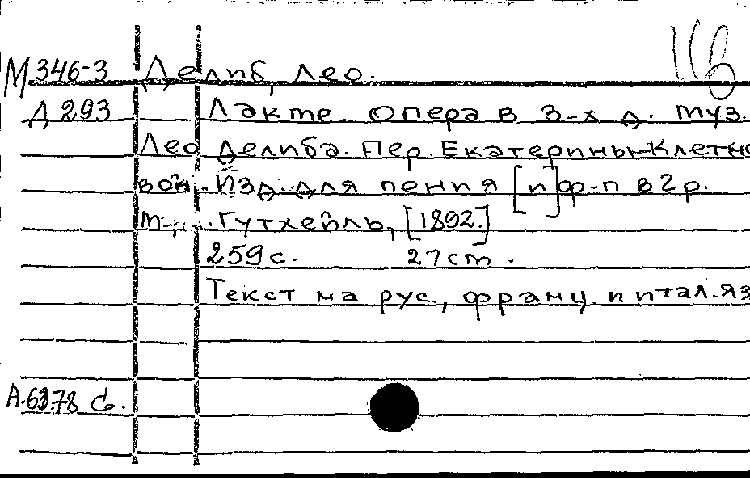 116
М 346-3 Делиб, Лео.
Д 293 Лакме. Опера в 3-х д. Муз.
Лео Делиба. Пер. Екатерины Клетно
вой. Изд. для пения [и] ф-п в 2 р.
М., Гутхейль, [1892.]
259 с. 27 cm.
Текст на рус., франц. и итал. яз
А-6378 с.